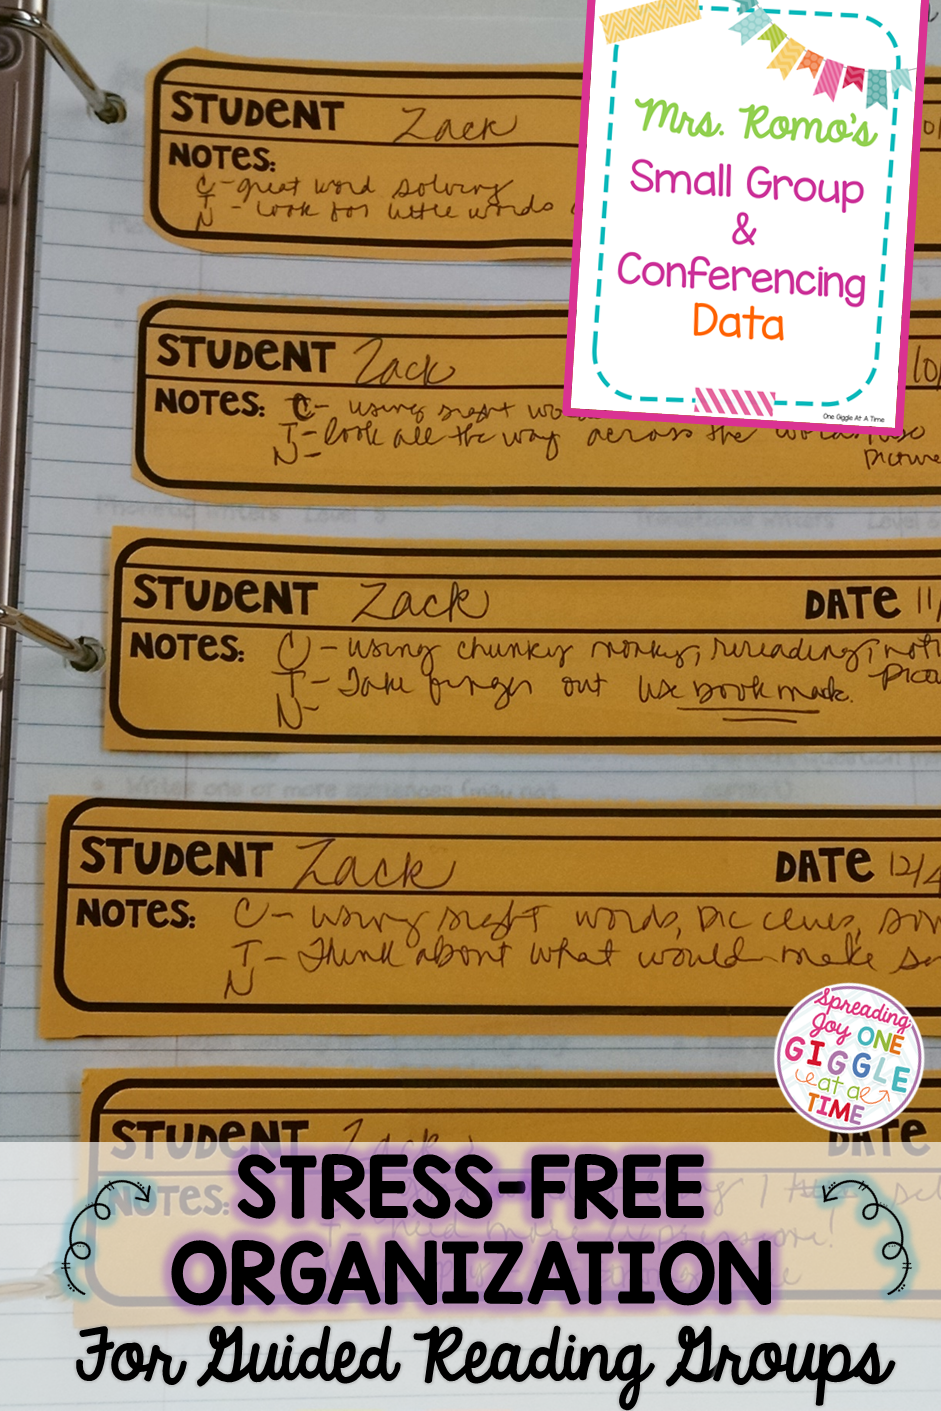 Mrs. Romo's
Small Group
&
Conferencing
Data
One Giggle At A Time
STUDENT Zack
NOTES:
C - great word solving
T - look for little words
N
STUDENT Zack 10/
NOTES: C - using sight wo
T - look all the way across the word/use
N - picture
STUDENT Zack DATE 11/
NOTES: C - using chunky monkey, rereading,
T - Take finger out use bookmark.
N -
STUDENT Zack DATE 12/4
NOTES: C - using sight words, pic clues,
T - Think about what would make
N
STUDENT Zack DATE
NOTES:
Spreading
Joy ONE
GIGGLE
at a
TIME
STRESS-FREE
ORGANIZATION
For Guided Reading Groups